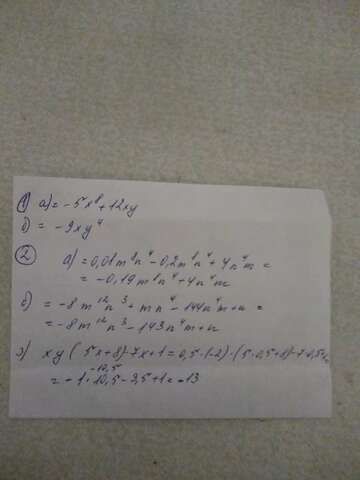 1) а) = -5x⁸ + 12xy
б) = -9xy⁴
2) а) = 0,01m⁸n⁴ - 0,2m⁸n⁴ + 4n⁴m =
= -0,19m⁸n⁴ + 4n⁴m
б) = -8m¹²n³ + mn⁴ - 144n⁴m + n =
= -8m¹²n³ - 143n⁴m + n
3) xy(5x+8)-7x+1 = 0,5·(-2)·(5·0,5+8)-7·0,5+1=
-10,5
= -1·10,5-3,5+1 = -13